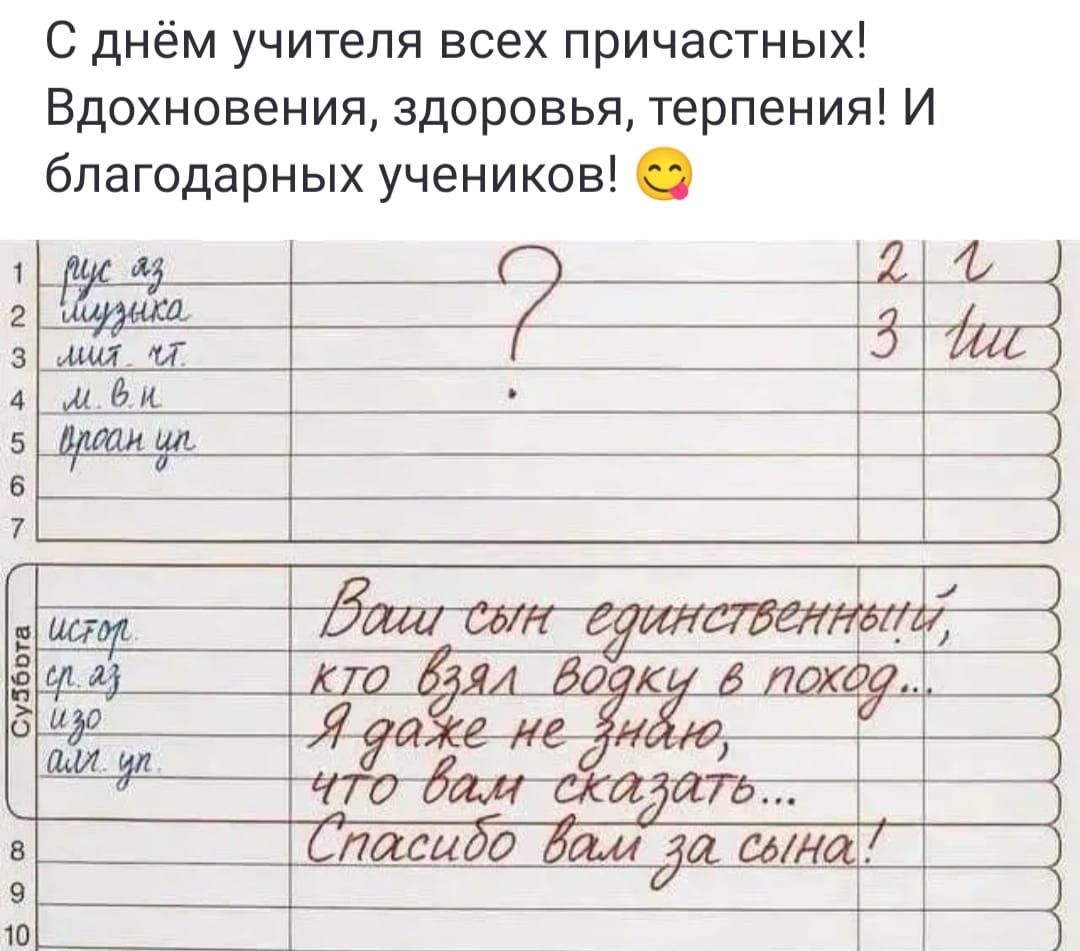 С днём учителя всех причастных!
Вдохновения, здоровья, терпения! И
благодарных учеников! 😋
1 рус яз ? 2
2 музыка 3
3 лит. чт.
4 м. в. н
5 ур
6
7
Суббота
истор.
ср. яз
изо
ур.
Ваш сын единственный,
кто взял водку в поход...
Я даже не знаю,
что вам сказать...
Спасибо вам за сына!
8
9
10